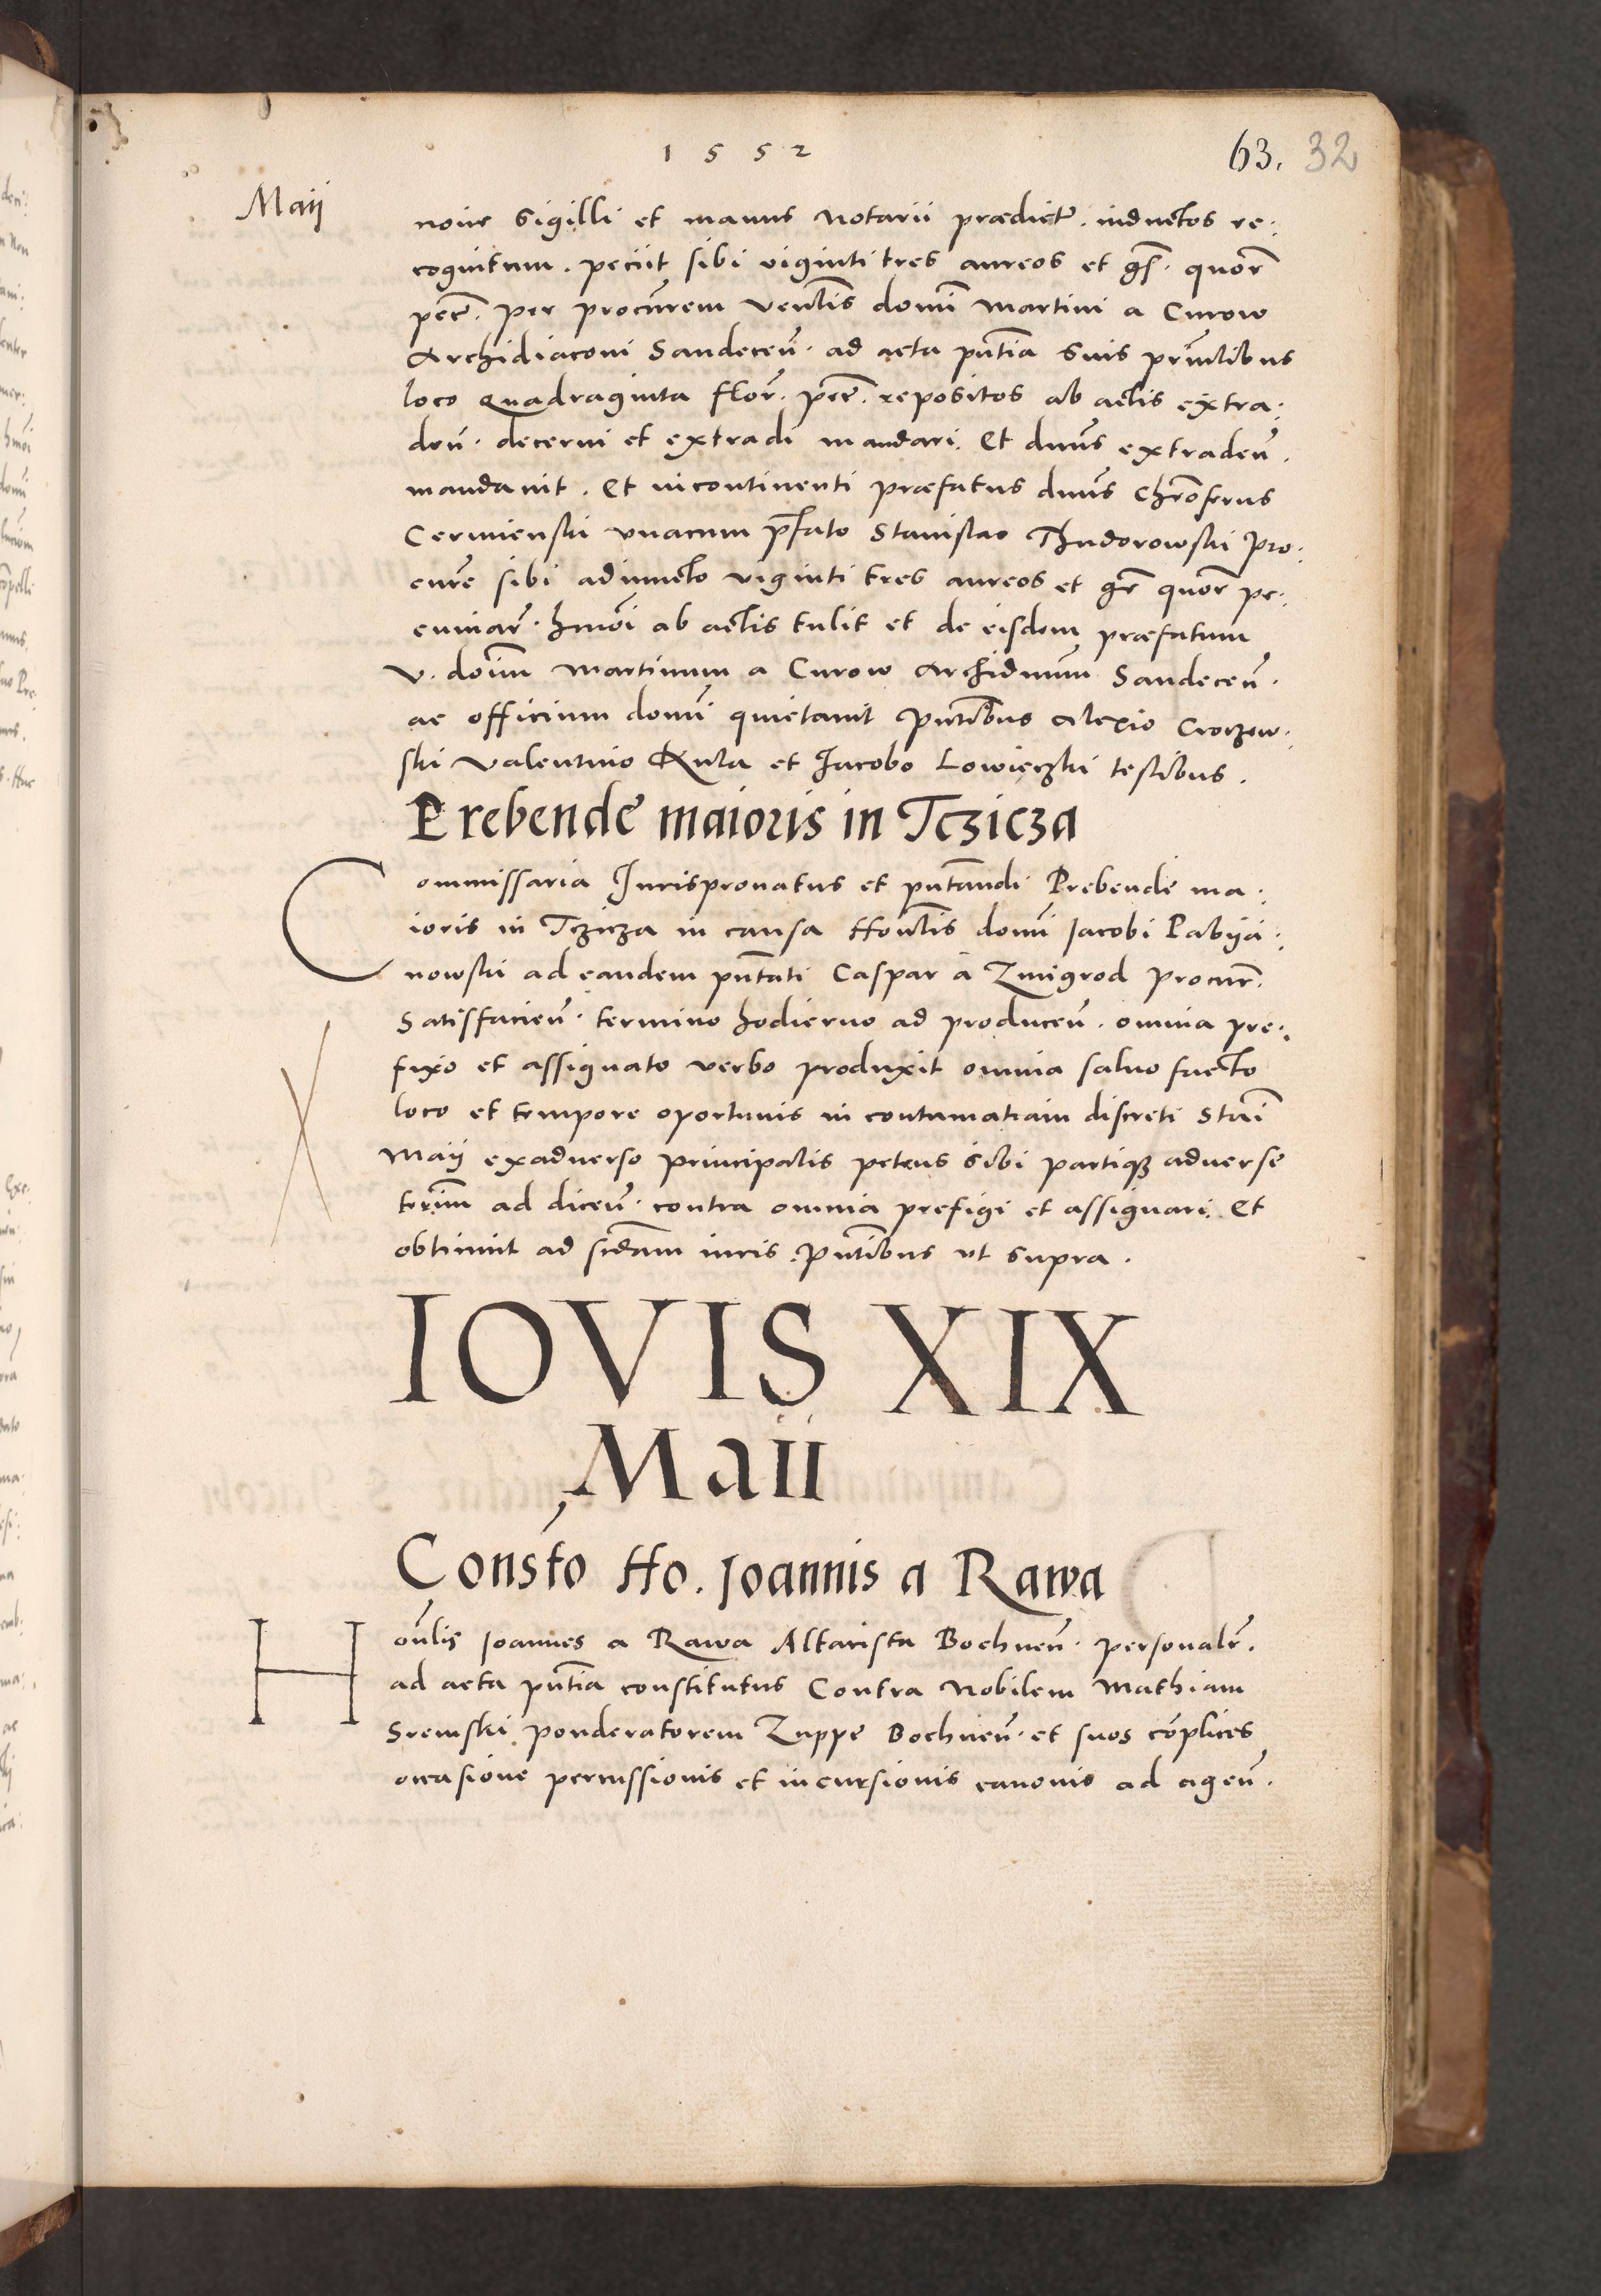 1552
63. 32
Maij
noīe sigilli et manus Notarii prædictr̃. inductos re:
cognitum. peciit sibi viginti tres aureos et gr̃s. quor̃
pec̃. per procur̃em Venlis̃ domī Martini a Curow
Archidiaconi Sandeceñ. ad acta pñtia suis prinłibus
loco quadraginta flor̃. pec̃. repositos ab actis extra:
deñ. decerni et extradi mandari. Et dnũs extradeñ.
mandavit. Et incontinenti præfatus dnũs Chrõferus
Cermienski vnacum p̃fato Stanislao Thudorowski Pro:
cur̃e sibi adiuncto viginti tres aureos et gr̃ quor̃ pe:
cuniar̃. hmõi ab actis tulit et de eisdem præfatum
V. doim̃ Martinum a Curow Archidnum̃ Sandeceñ.
ac officium domī quietavit Pñtibus Alexio Croczow:
ski Valentino Kula et Jacobo Lowięczki testibus.
Prebende maioris in Tczicza
Commissaria Jurispronatus et pñtandi Prebende ma:
ioris in Tczicza in causa Honłis domī Jacobi Pabija:
nowski ad eandem pñtati Caspar a Zmigrod Procur̃.
Satisfacieñ. termino hodierno ad produceñ. omnia pre:
fixo et assignato verbo produxit omnia salvo facto
loco et tempore oportunis in contumatiam discreti Stañi
Maij exadverso principalis petens sibi partiq; adverse
term̃ ad diceñ. contra omnia prefigi et assignari. Et
obtinuit ad scdam̃ iuris. Pñtibus vt supra.
IOVIS XIX
Maii
Consto Ho. Joannis a Rawa
Honlis̃ Joannes a Rawa Altarista Bochneñ. personalr̃.
ad acta pñtia constitutus Contra Nobilem Mathiam
Sremski ponderatorem Zuppe Bochneñ. et suos cõplices
occasione percussionis et incursionis canonis ad ageñ.